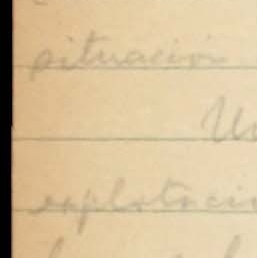 situación
Un
explotació